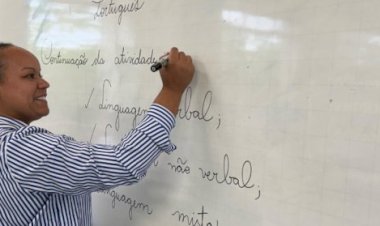 Português
Continuação da atividade
✓ Linguagem verbal;
não verbal;
Linguagem mista